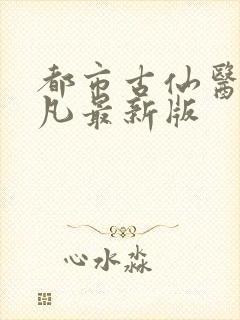 都市古仙醫
凡最新版
心水淼